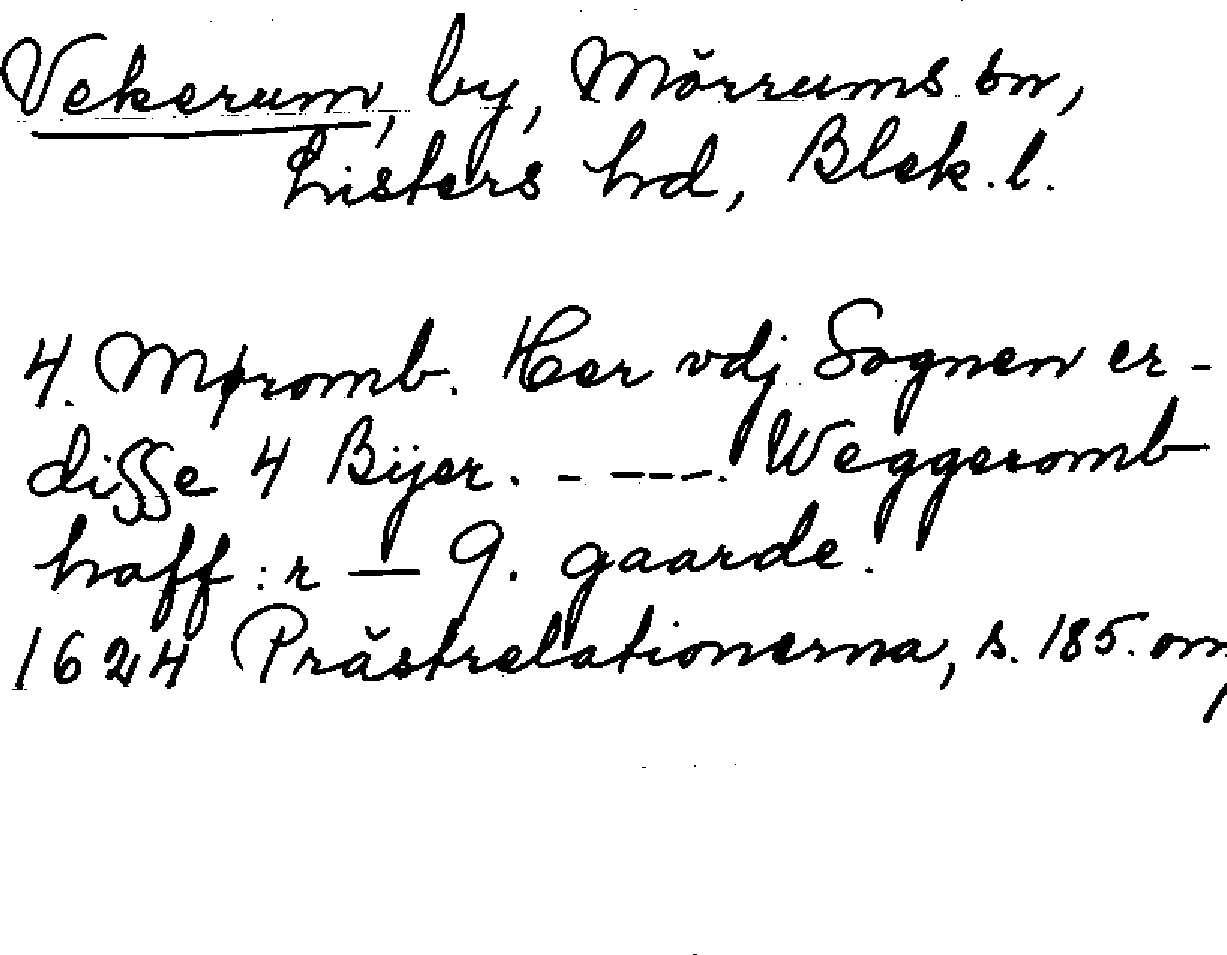 Vekerum, by, Mörrums sn,
Listers hd, Blek. l.
4. Møromb. Her vdj Sognen er -
disse 4 Bÿer. - ---. Weggeromb
haff: r — 9. gaarde.
1624 Prästrelationerna, s. 185.